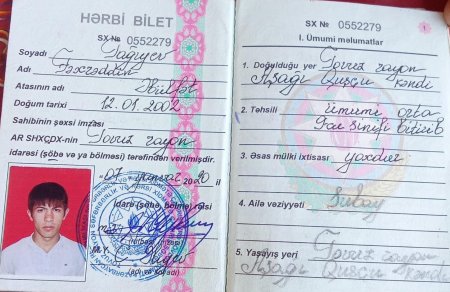 HƏRBİ BİLET
SX № 0552279
Soyadı Tağıyev
Adı Fəxrəddin
Atasının adı
Doğum tarixi 12.01.2002
Sahibinin şəxsi imzası
AR SHXÇDX-nin Tovuz rayon
idarəsi (şöbə və ya bölməsi) tərəfindən verilmişdir.
"07" yanvar 2020 il
İdarə (şöbə, bölmə) rəisi
(hərbi rütbəsi)
M.Y.
(adı və soyadı)
SX № 0552279
1
I. Ümumi məlumatlar
1. Doğulduğu yer Tovuz rayon
Aşağı Quşçu kəndi
2. Təhsili ümumi orta
sinifi bitirib
3. Əsas mülki ixtisası yoxdur
4. Ailə vəziyyəti Subay
5. Yaşayış yeri Tovuz rayon
Aşağı Quşçu kəndi